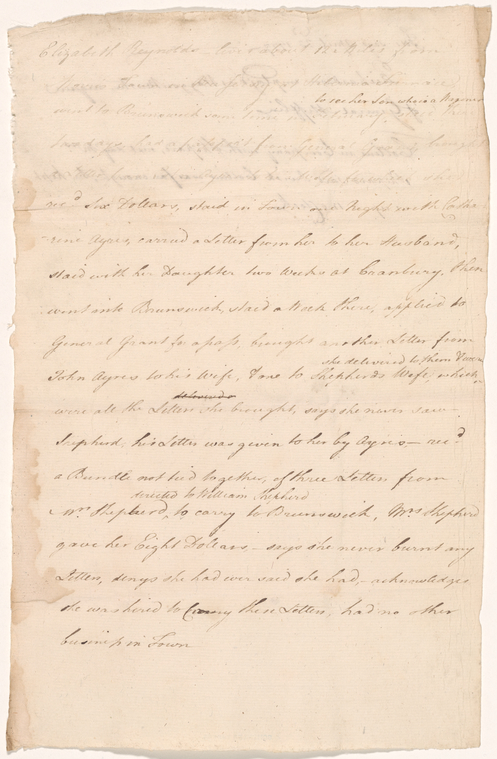 Elizabeth Reynolds
to see her Son who is a
went to Brunswick some time
brought
rec'd Six Dollars, staid in Town one Night with Cathe-
-rine Ayres, carried a Letter from her to her Husband,
staid with her Daughter two Weeks at Cranbury. Then
went into Brunswick, staid a Week there, applied to
General Grant for a pass, brought another Letter from
she delivered to them
John Ayres to his Wife, & one to Shepherds Wife, which
delivered
were all the Letters she brought, says she never saw
Shepherd, his Letter was given to her by Ayres — rec'd
a Bundle not tied together, of three Letters from
directed to William Shepherd
Mrs. Shepherd, to carry to Brunswick, Mrs. Shepherd
gave her Eight Dollars, — says she never burnt any
Letters, denys she had ever said she had, — acknowledges
she was hired to Carry these Letters, had no other
business in Town